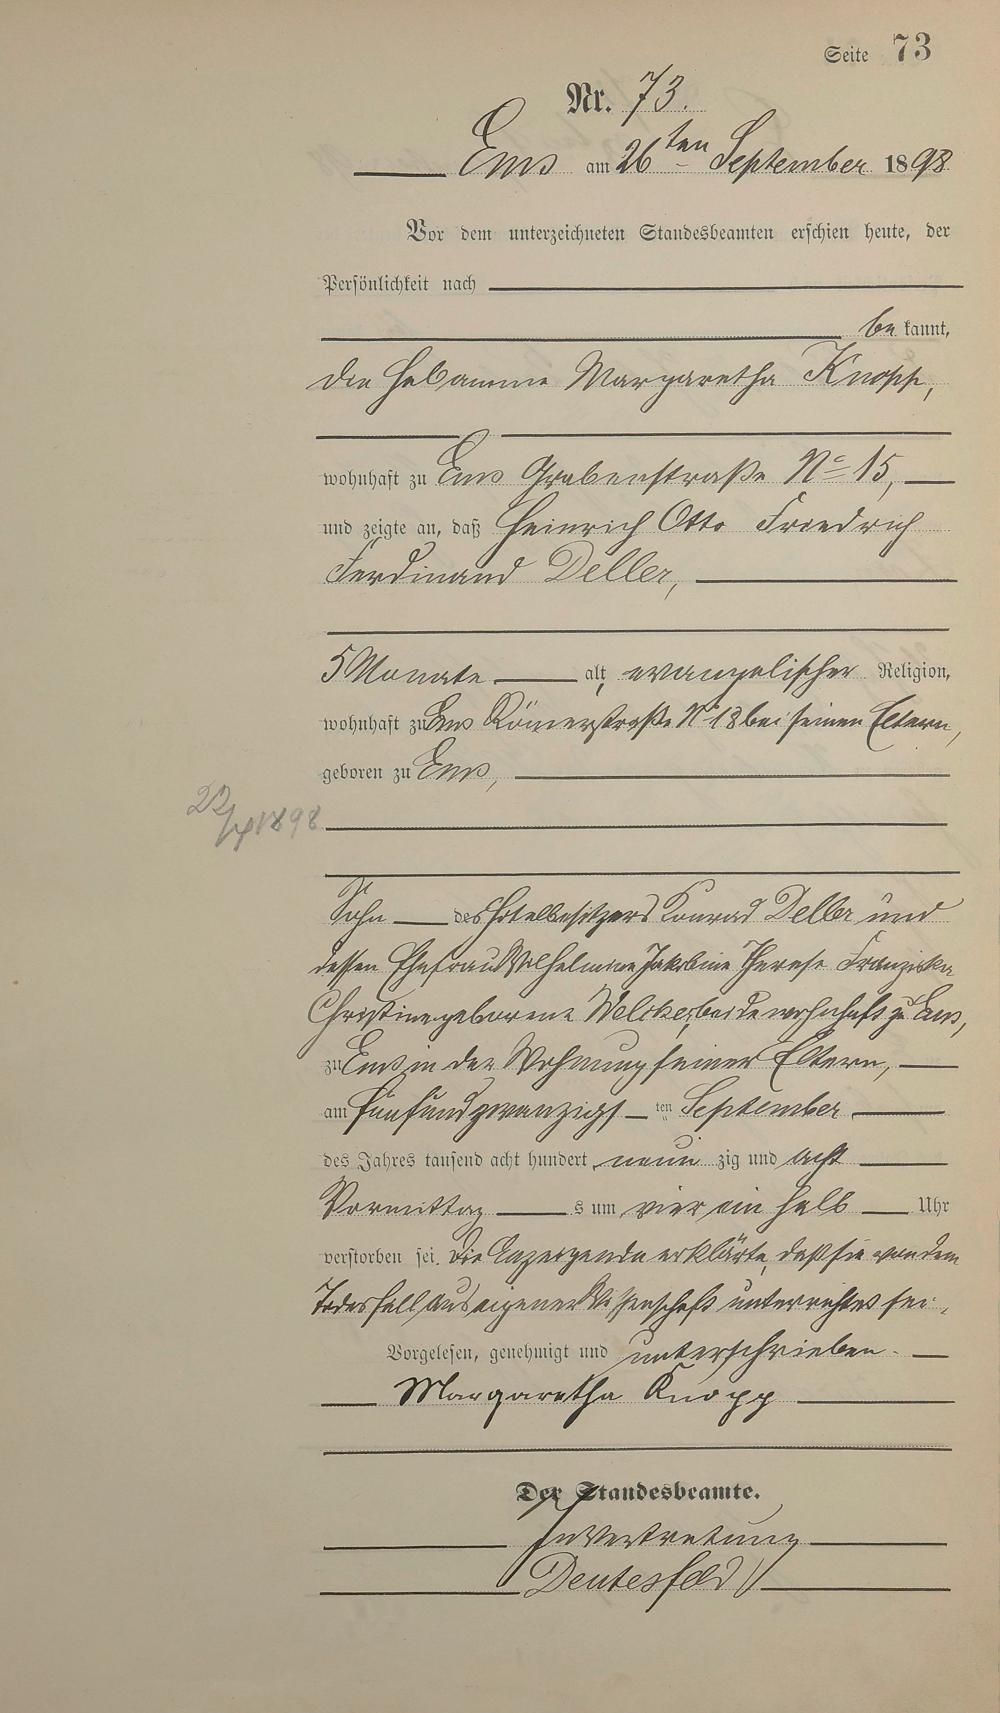 Seite 73
Nr. 73.
Ems am 26ten September 1898
Vor dem unterzeichneten Standesbeamten erschien heute, der
Persönlichkeit nach
be kannt,
die Hebamme Margaretha Knopp,
wohnhaft zu Ems Grabenstraße No 15,
und zeigte an, daß Heinrich Otto Friedrich
Ferdinand Deller,
5 Monate alt, evangelischer Religion,
wohnhaft zu Ems Römerstraße No 18 bei seinen Eltern,
geboren zu Ems,
1898
Sohn des Hotelbesitzers Konrad Deller und
dessen Ehefrau Wilhelmine Jakobine Therese Franziska
Christine geborene Welcker, beide wohnhaft zu Ems,
zu Ems in der Wohnung seiner Eltern,
am fünfundzwanzigs ten September
des Jahres tausend acht hundert neun zig und acht
Vormittag s um vier ein halb Uhr
verstorben sei. Die Anzeigende erklärte, daß sie von dem
Todesfall aus eigener Wissenschaft unterrichtet sei.
Vorgelesen, genehmigt und unterschrieben.
Margaretha Knopp
Der Standesbeamte.
In Vertretung
Deutesfeld